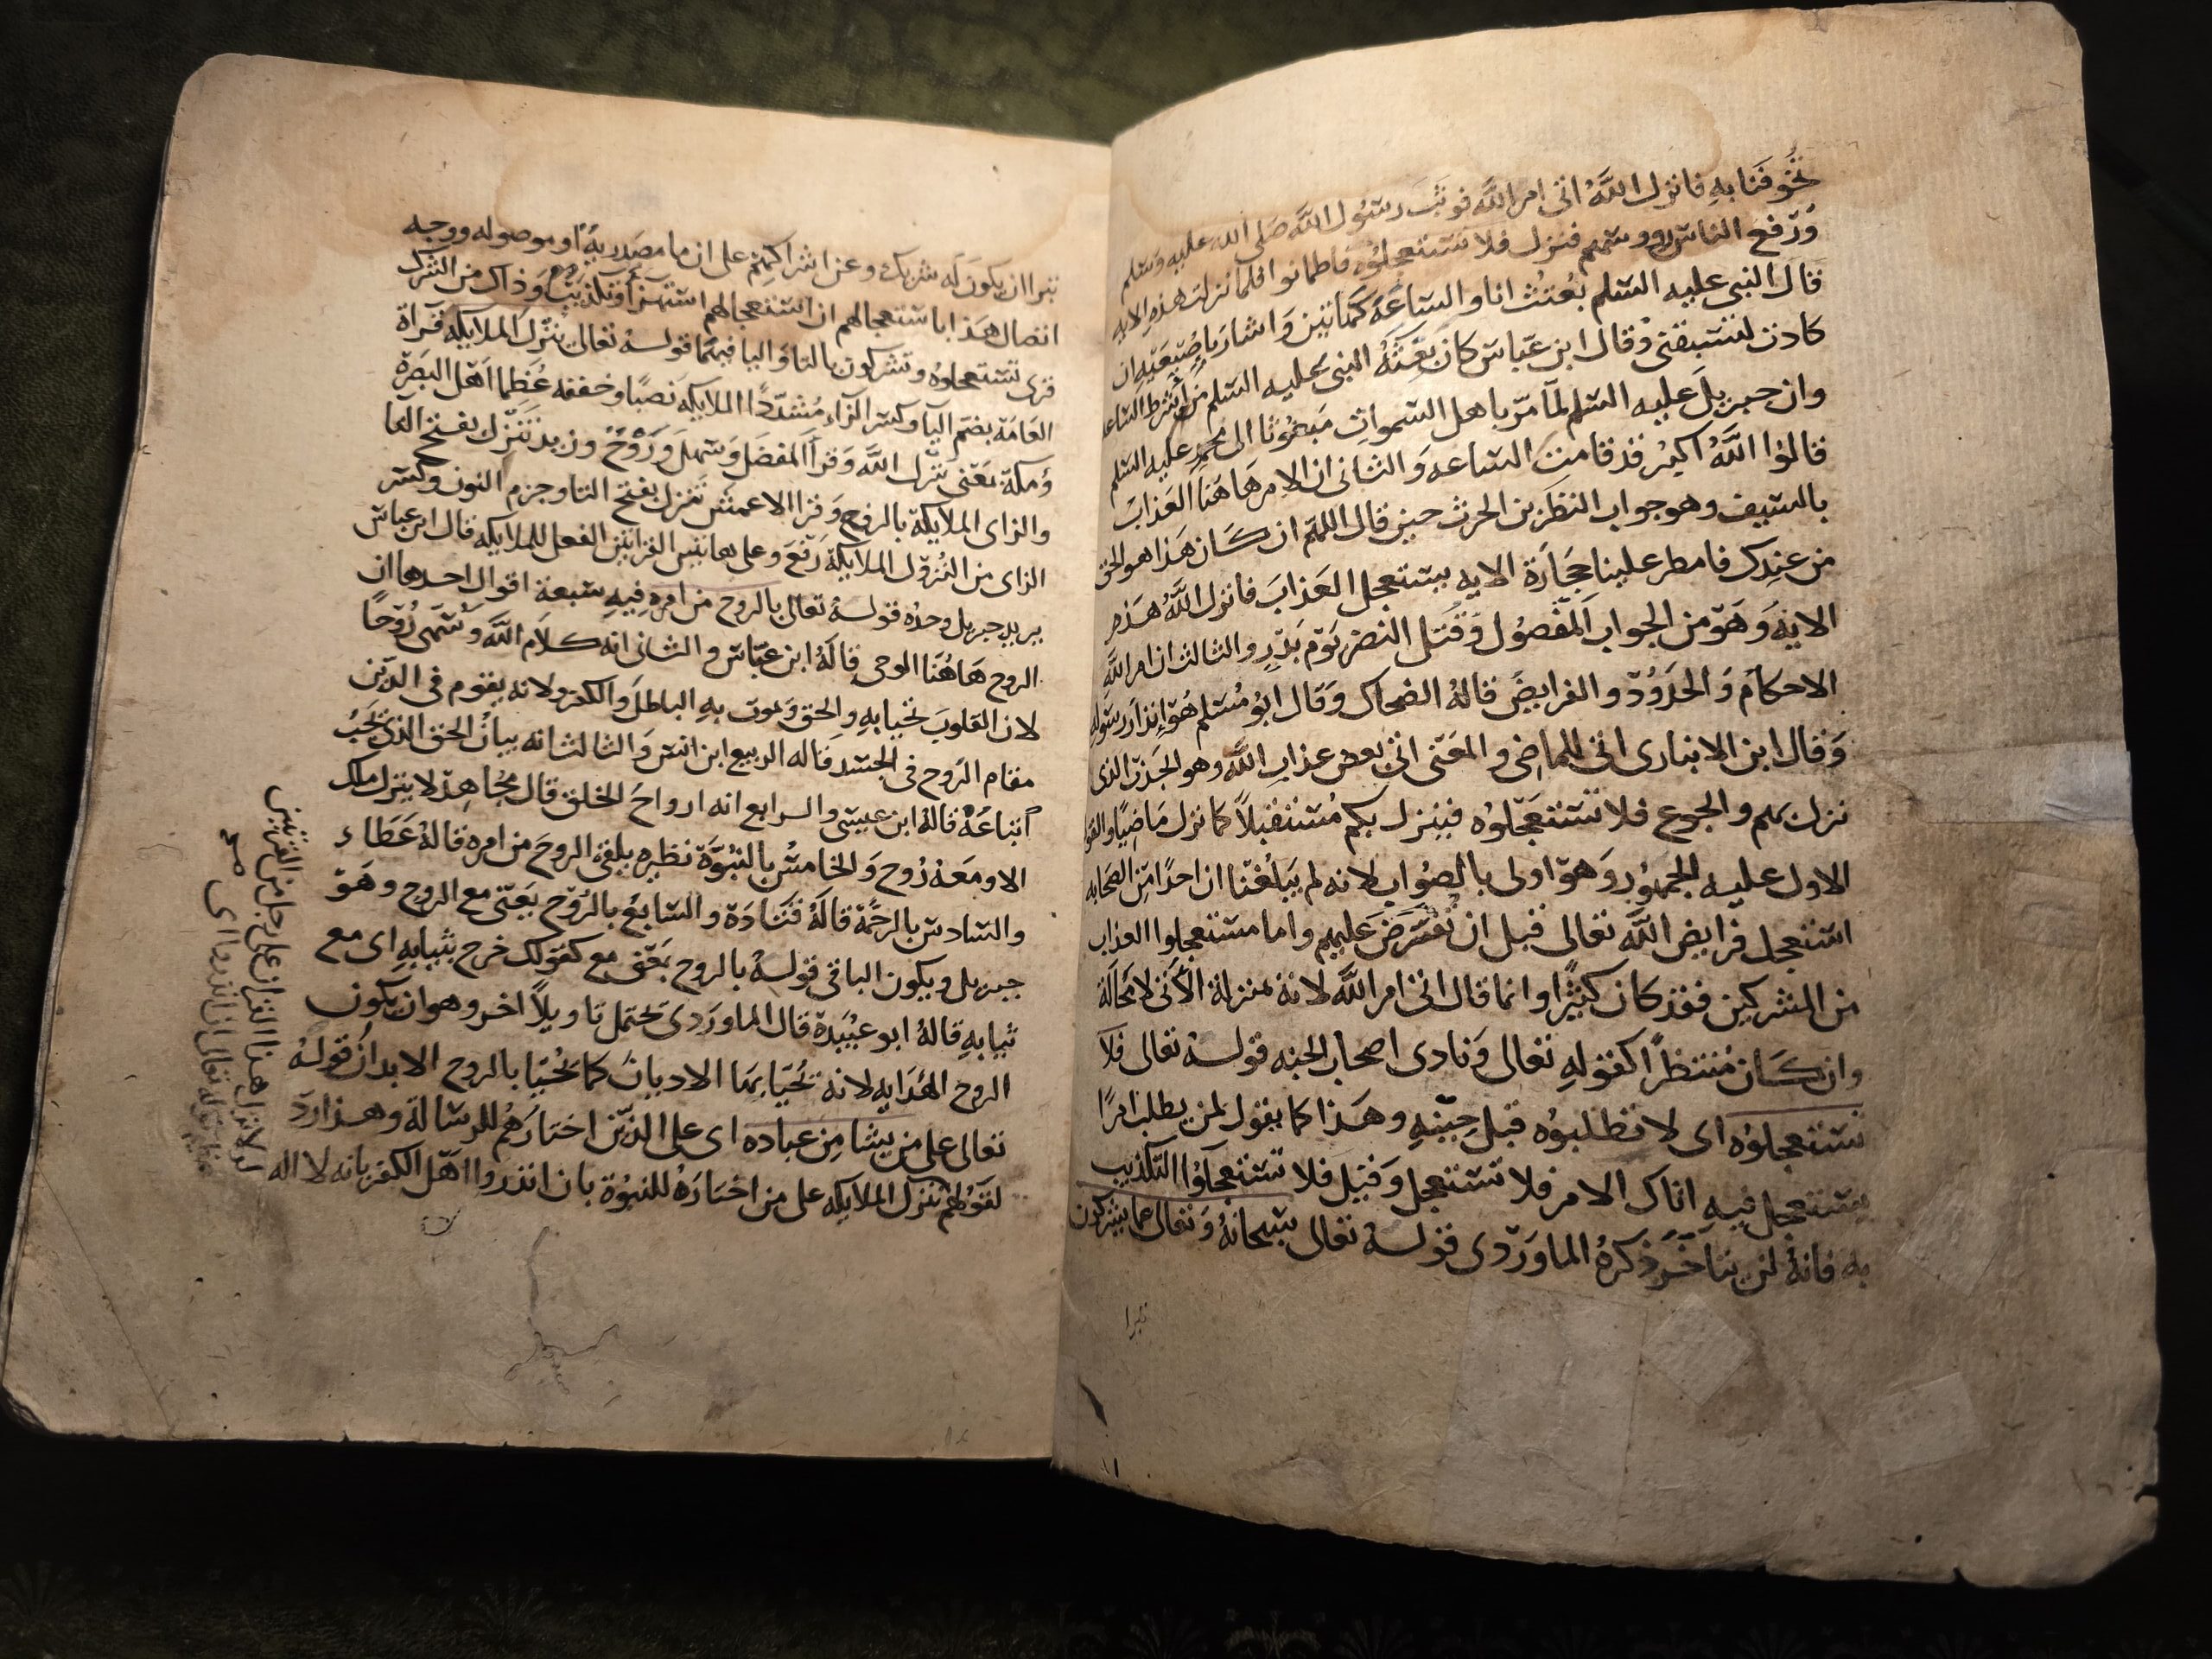 تخوفنا به فانزل الله اتى امر الله فوثب رسول الله صلى الله عليه وسلم
ورفع الناس رووسهم فنزل فلا تستعجلوه فاطمانوا فلما نزلت هذه الايه
قال النبى عليه السلم بعثت انا والساعة كهاتين واشار باصبعيه ان
كادت لتسبقنى وقال ابن عباس كان بعثه النبى عليه السلم من اشرط الساعه
وان جبريل عليه السلم لما مر باهل السموات مبعوثا الى محمد عليه السلم
قالوا الله اكبر قد قامت الساعه والثانى ان الامر هاهنا العذاب
بالسيف وهو جواب النظر بن الحرث حين قال اللهم ان كان هذا هو الحق
من عندك فامطر علينا حجارة الايه يستعجل العذاب فانزل الله هذه
الايه وهو من الجواب المفصول وقتل النضر يوم بدر والثالث ان امر الله
الاحكام والحدود والفرايض قاله الضحاك وقال ابو مسلم هو انذار رسوله
وقال ابن الانبارى اتى للماضى والمعنى اتى بعض عذاب الله وهو الجدب الذى
نزل بهم والجوع فلا تستعجلوه فينزل بكم مستقبلا كما نزل ماضيا والقول
الاول عليه الجمهور وهو اولى بالصواب لانه لم يبلغنا ان احدا من الصحابه
استعجل فرايض الله تعالى قبل ان تفترض عليهم واما مستعجلوا العذاب
من المشركين فقد كان كثيرا وانما قال اتى امر الله لانه بمنزلة الآتى لا محالة
وان كان منتظرا كقوله تعالى ونادى اصحاب الجنه قوله تعالى فلا
تستعجلوه اى لا تطلبوه قبل حينه وهذا كما يقول لمن يطلب امرا
يستعجل فيه اتاك الامر فلا تستعجل وقيل فلا تستعجلوا التكذيب
به فانه لن يتاخر ذكره الماوردى قوله تعالى سبحانه وتعالى عما يشركون
تبرا
تبرا ان يكون له شريك وعن اشراكهم على ان ما مصدرية او موصوله ووجه
اتصال هذا باستعجالهم ان استعجالهم استهزأ وتكذيب وذاك من الشرك
قرى تستعجلوه وتشركون بالتا واليا فيهما قوله تعالى ينزل الملايكه قراة
العامة بضم اليا وكسر الزاء مشددا الملايكه نصبا وخففه عظما اهل البصرة
ومكة يعنى ينزل الله وقرا المفضل وسهل وروح وزيد تنزل بفتح التا
والزاى الملايكة بالرفع وقرا الاعمش تنزل بفتح التا وجزم النون وكسر
الزاى من النزول الملايكة رفع وعلى هاتين القراتين الفعل للملايكه قال ابن عباس
يريد جبريل وحده قوله تعالى بالروح من امره فيه سبعة اقوال احدها ان
الروح هاهنا الوحى قاله ابن عباس والثانى انه كلام الله وسمى روحا
لان القلوب تحيا به والحق وتموت به الباطل والكفر ولانه يقوم فى الدين
مقام الروح فى الجسد قاله الربيع ابن انس والثالث انه بيان الحق الذى يجب
اتباعه قاله ابن عيسى والرابع انه ارواح الخلق قال مجاهد لا ينزل ملك
الا ومعه روح والخامس بالنبوة نظيره يلقى الروح من امره قاله عطاء
والسادس بالرحمة قاله قتادة والسابع بالروح يعنى مع الروح وهو
جبريل ويكون الباقى قوله بالروح بمعنى مع كقولك خرج بثيابه اى مع
ثيابه قاله ابو عبيدة قال الماوردى يحتمل تاويلا اخر وهو ان يكون
الروح الهدايه لانه تحيا بها الاديان كما تحيا بالروح الابدان قوله
تعالى على من يشا من عباده اى على الذين اختارهم للرسالة وهذا رد
لقولهم تنزل الملايكه على من اختاره للنبوة بان انذروا اهل الكفر بانه لا اله
لولا نزل هذا القران على رجل من القريتين
قوله تعالى ان انذروا اى صح